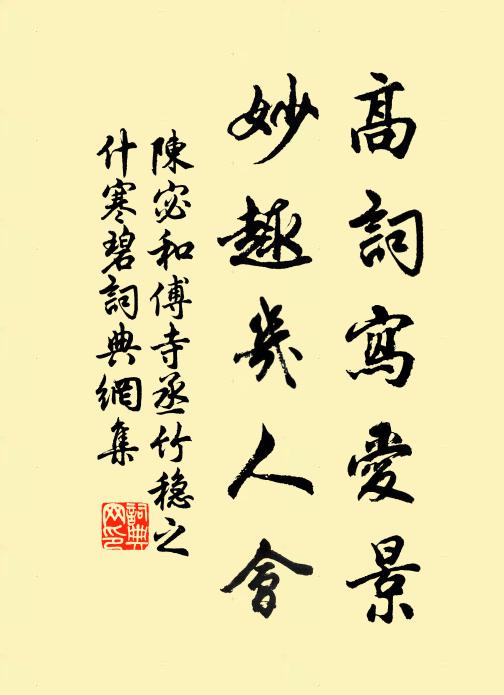 高詞寫愛景
妙趣幾人會
陳宓和傅寺丞竹穏之
什寒碧詞典網集
詞典
网印